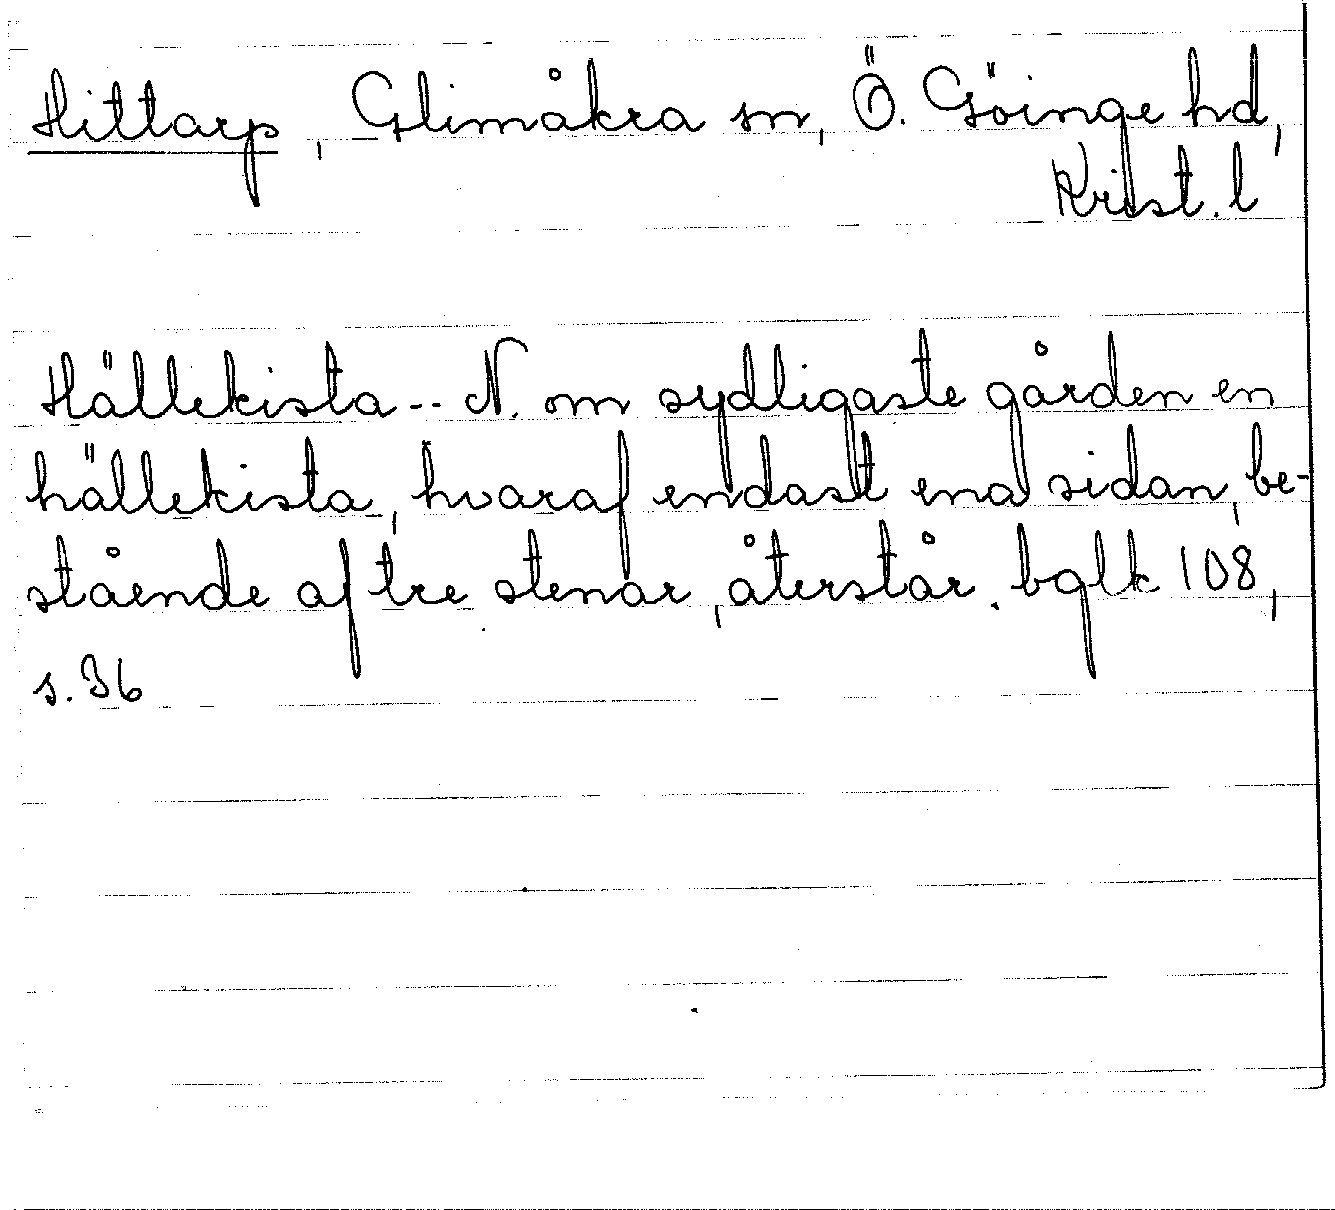 Hittarp, Glimåkra sn, Ö. Göinge hd,
Krist. l
Hällekista -- N. om sydligaste gården en
hällekista, hvaraf endast ena sidan, be-
stående af tre stenar, återstår. bglk 108,
s. 36